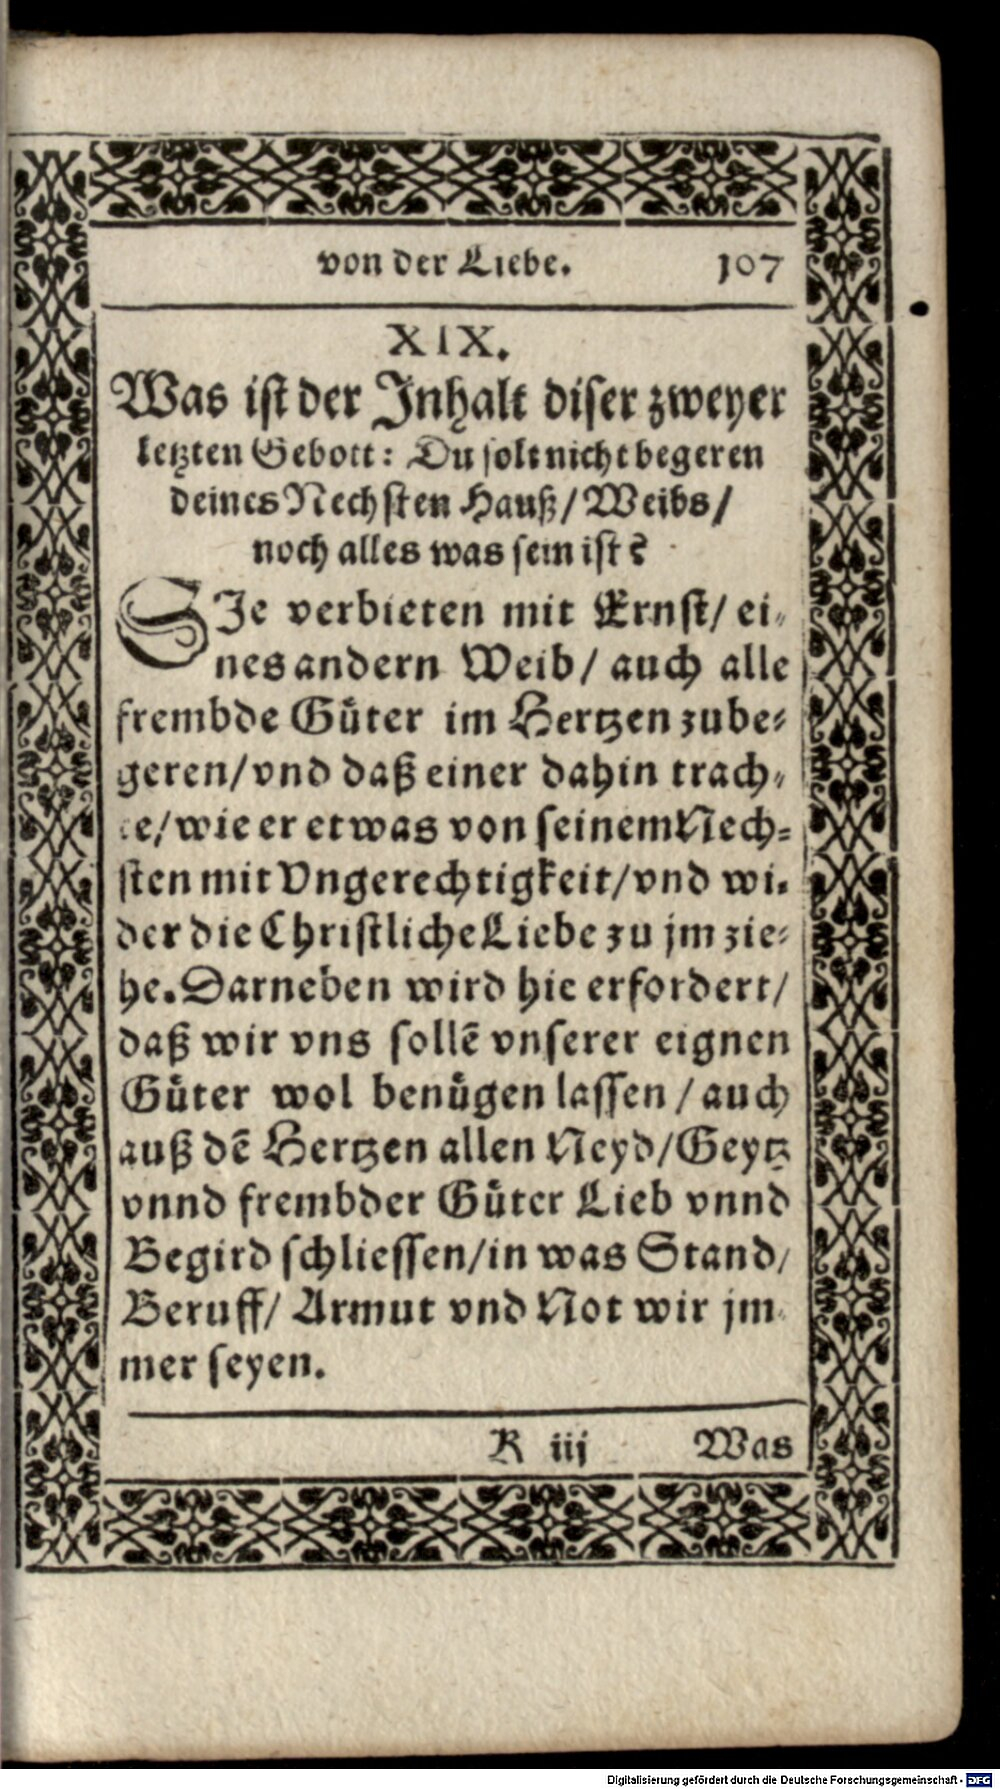 von der Liebe. 107
XIX.
Was ist der Inhalt diser zweyer
letzten Gebott: Du solt nicht begeren
deines Nechsten Hauß/ Weibs/
noch alles was sein ist?
SIe verbieten mit Ernst/ ei-
nes andern Weib/ auch alle
frembde Gůter im Hertzen zube-
geren/ vnd daß einer dahin trach-
te/ wie er etwas von seinem Nech-
sten mit Vngerechtigkeit/ vnd wi-
der die Christliche Liebe zu jm zie-
he. Darneben wird hie erfordert/
daß wir vns sollē vnserer eignen
Gůter wol benůgen lassen / auch
auß dē Hertzen allen Neyd/ Geytz
vnnd frembder Gůter Lieb vnnd
Begird schliessen/ in was Stand/
Beruff/ Armut vnd Not wir jm-
mer seyen.
K iij Was
Digitalisierung gefördert durch die Deutsche Forschungsgemeinschaft - DFG